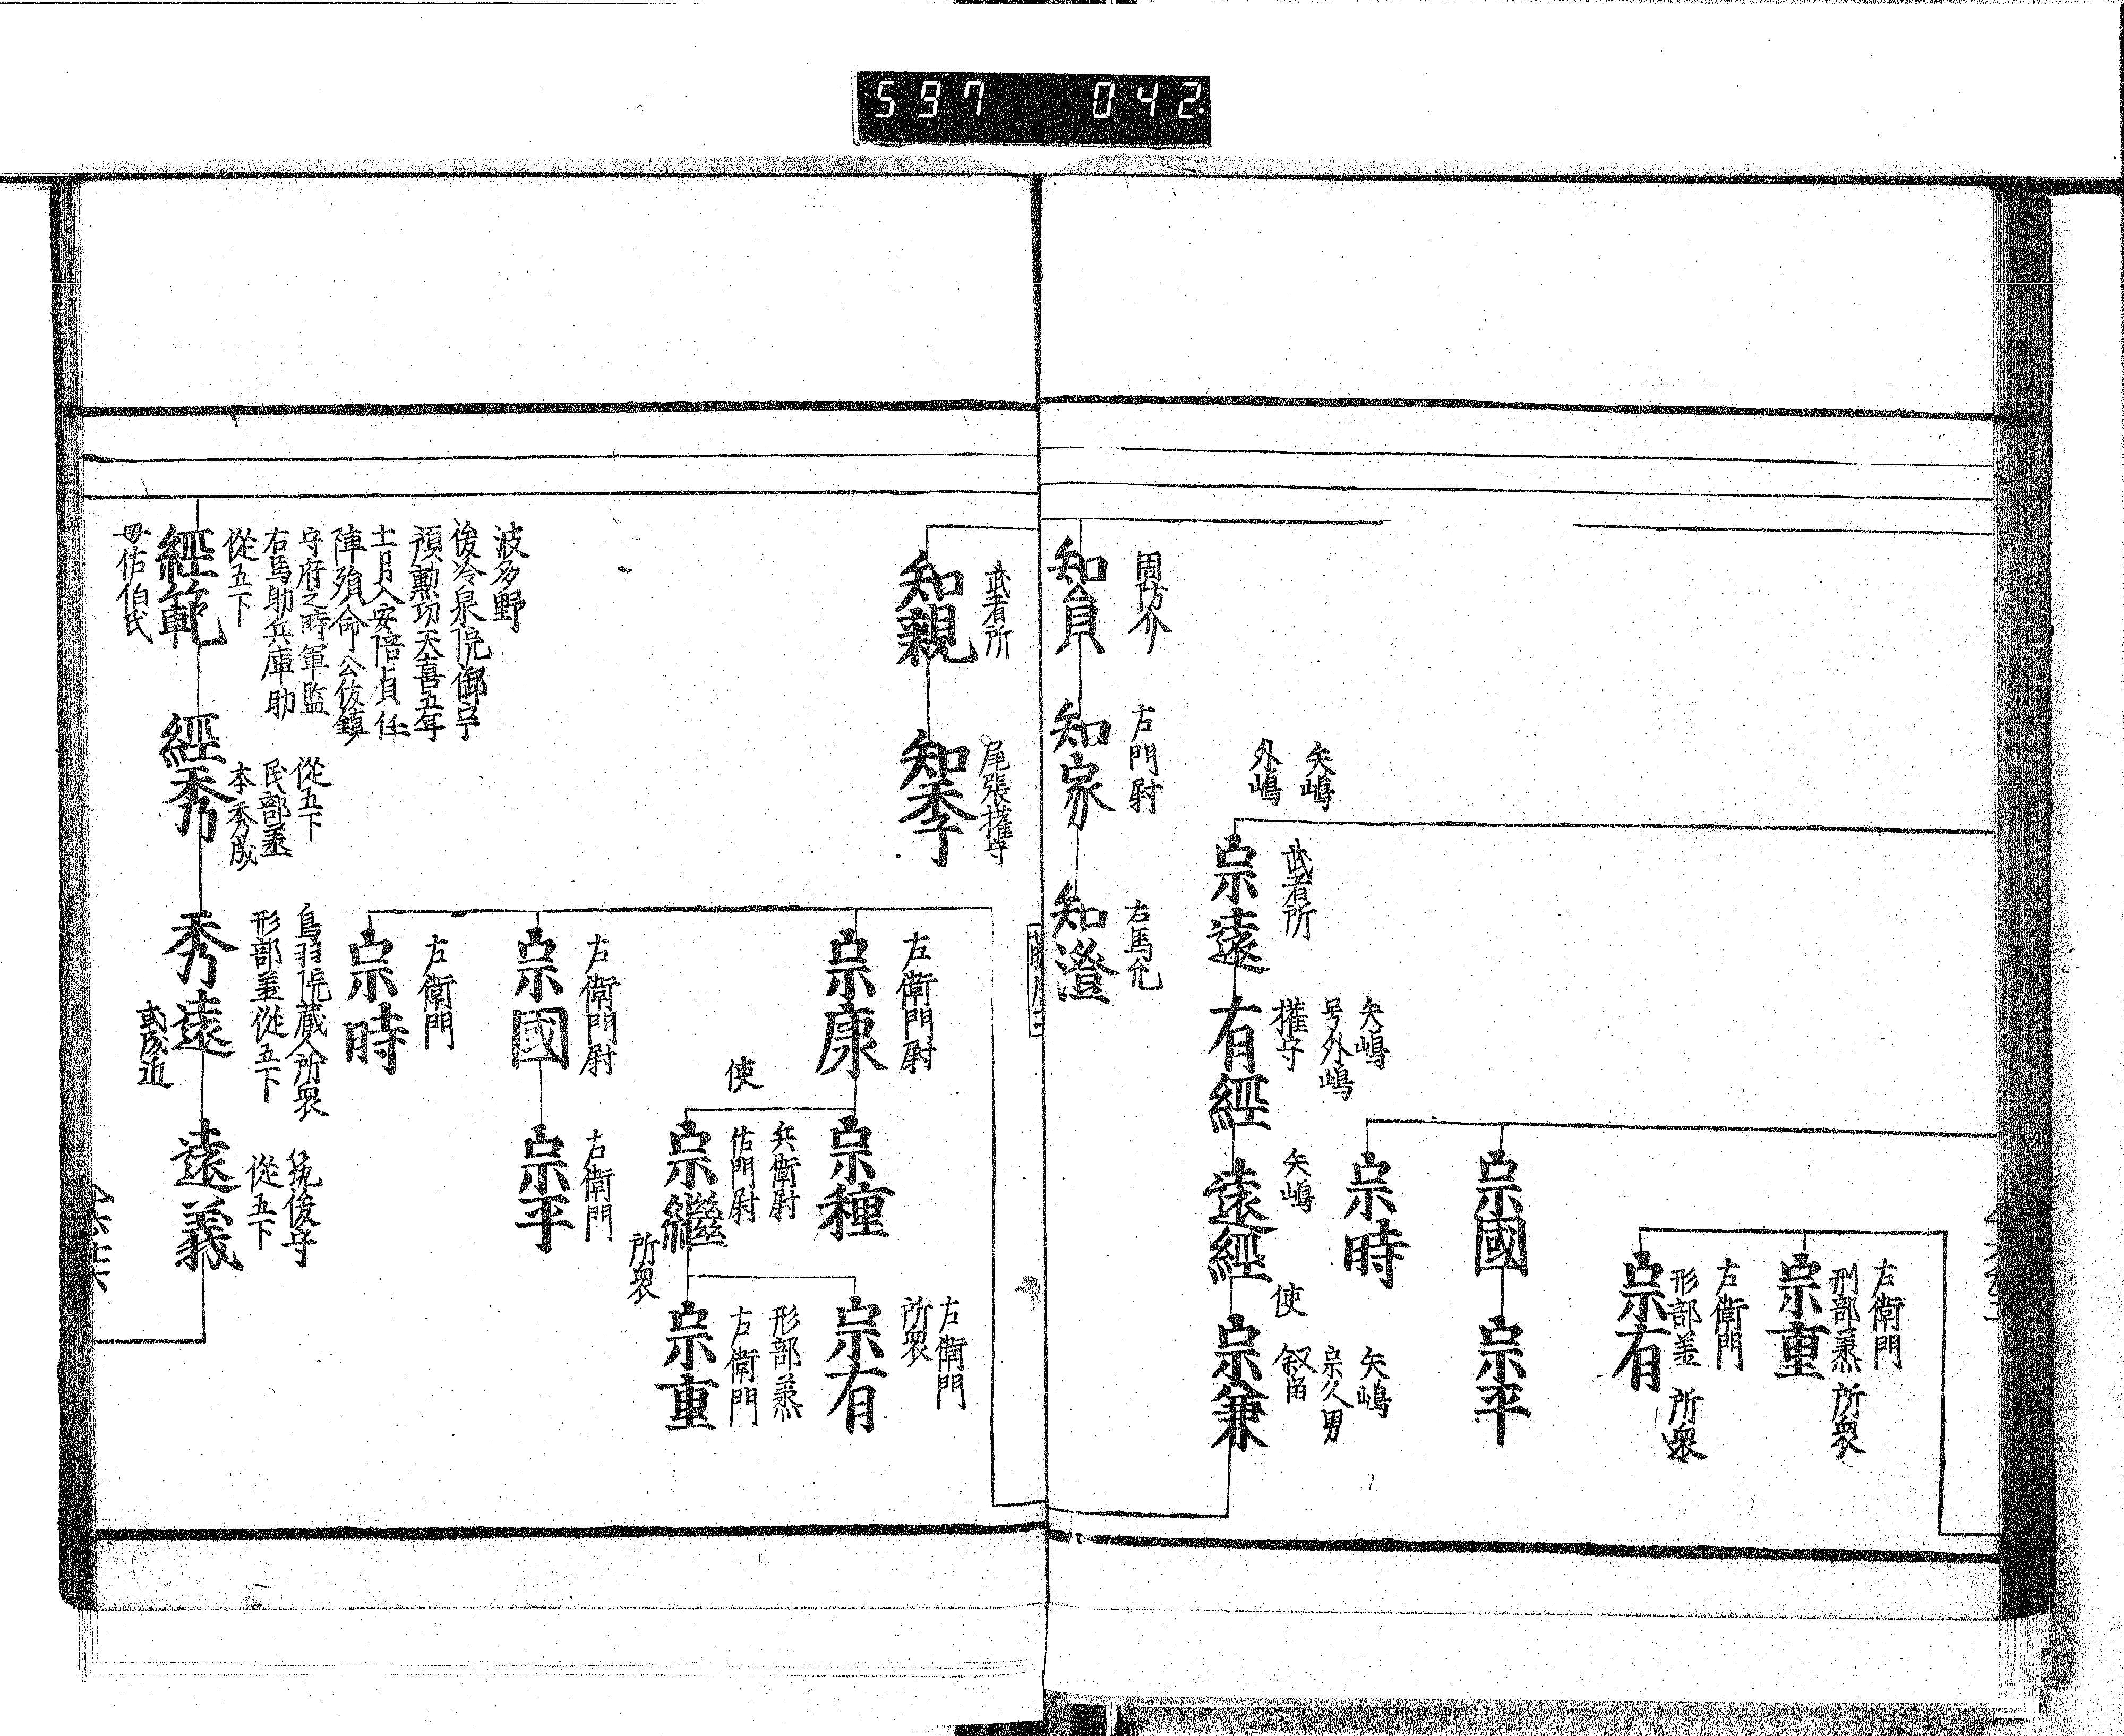 597 042.
左衛門
刑部烝 所衆
宗重
左衛門
形部丞 所衆
宗有
宗國
宗平
宗時
矢嶋
外嶋
武者所
宗遠
矢嶋
号外嶋
權守
有經
矢嶋
遠經
矢嶋
宗久男
使 叙留
宗兼
周防介
知貞
左門尉
知家
右馬允
知澄
武者所
知親
尾張權守
知季
左衛門尉
宗康
宗種
使
兵衛尉
佑門尉
宗繼
所衆
左衛門
所衆
宗有
形部烝
左衛門
宗重
左衛門尉
宗國
右衛門
宗平
左衛門
宗時
波多野
後冷泉院御宇
預勲功天喜五年
十一月入安倍貞任
陣殞命公佐鎮
守府之時軍監
右馬助兵庫助
從五下
經範
母佐伯氏
從五下
民部丞
本秀成
經秀
鳥羽院蔵人所衆
形部丞從五下
秀遠
或成近
筑後守
從五下
遠義